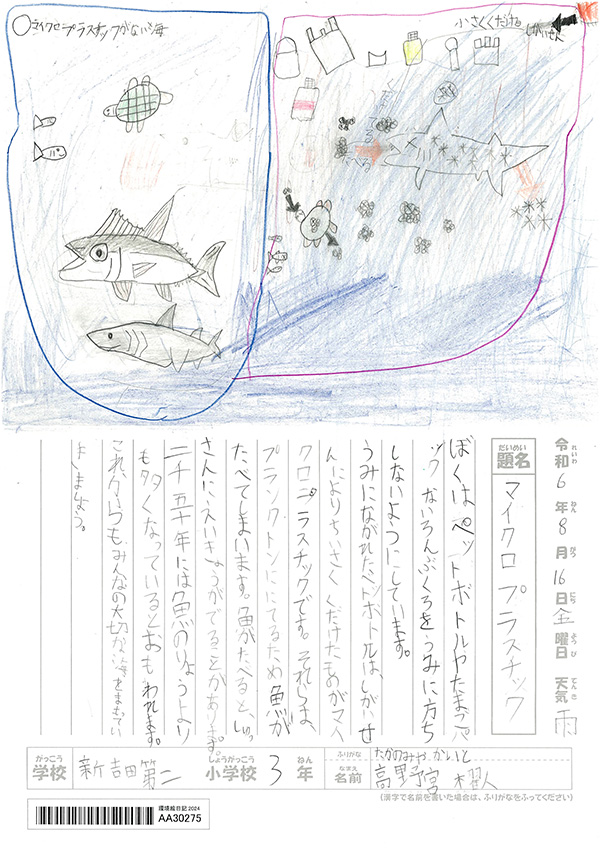 ○マイクロプラスチックがない海
小さくくだける
しがいせん
たべる
令和6年8月16日金曜日 天気 雨
れいわ ねん がつ にち ようび てんき
だいめい
題名 マイクロプラスチック
ぼくはペットボトルやたまごパ
ック、ないろんぶくろをうみに方ち
しないようにしています。
うみにながれたペットボトルは、しがいせ
んによりちいさくくだけたものがマイ
クロプラスチックです。それらは、
プランクトンににてるため魚が
たべてしまいます。魚がたべると、しゅっ
さんにえいきょうがでることがあります。
二千五十年には魚のりょうより
も多くなっているとおもわれます。
これからいつもみんなの大切な海をまもってい
きましょう。
がっこう しょうがっこう ねん
学校 新吉田第二 小学校 3年
ふりがな たかのみや かいと
なまえ
名前 高野宮 人
(漢字で名前を書いた場合は、ふりがなをふってください)
環境絵日記2024
AA30275